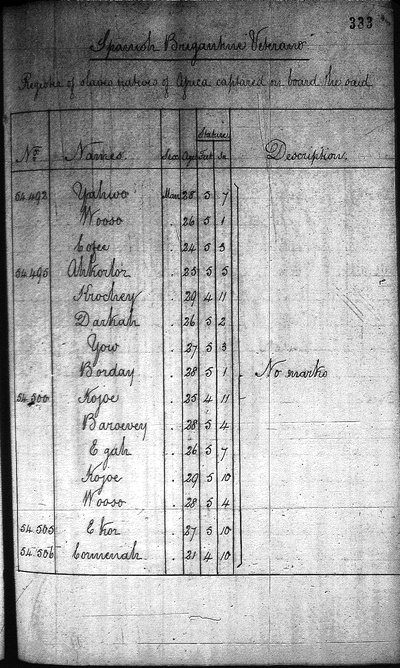 333
Spanish Brigantine Veterano
Register of slaves natives of Africa captured on board the said
Stature
No. Names. Sex Age Feet In Description.
54.492 Yahwo Man 25 5 7
Wooso . 26 5 1
Cofee . 24 5 3
54.495 Ahkorlor . 25 5 5
Krochey . 29 4 11
Darkah . 26 5 2
Yow . 27 5 3
Borday . 28 5 1 No marks
54.500 Kojoe . 25 4 11
Baroevey . 28 5 4
Egah . 26 5 7
Kojoe . 29 5 10
Wooso . 28 5 4
54.505 Ekor . 27 5 10
54.506 Commenah . 21 4 10